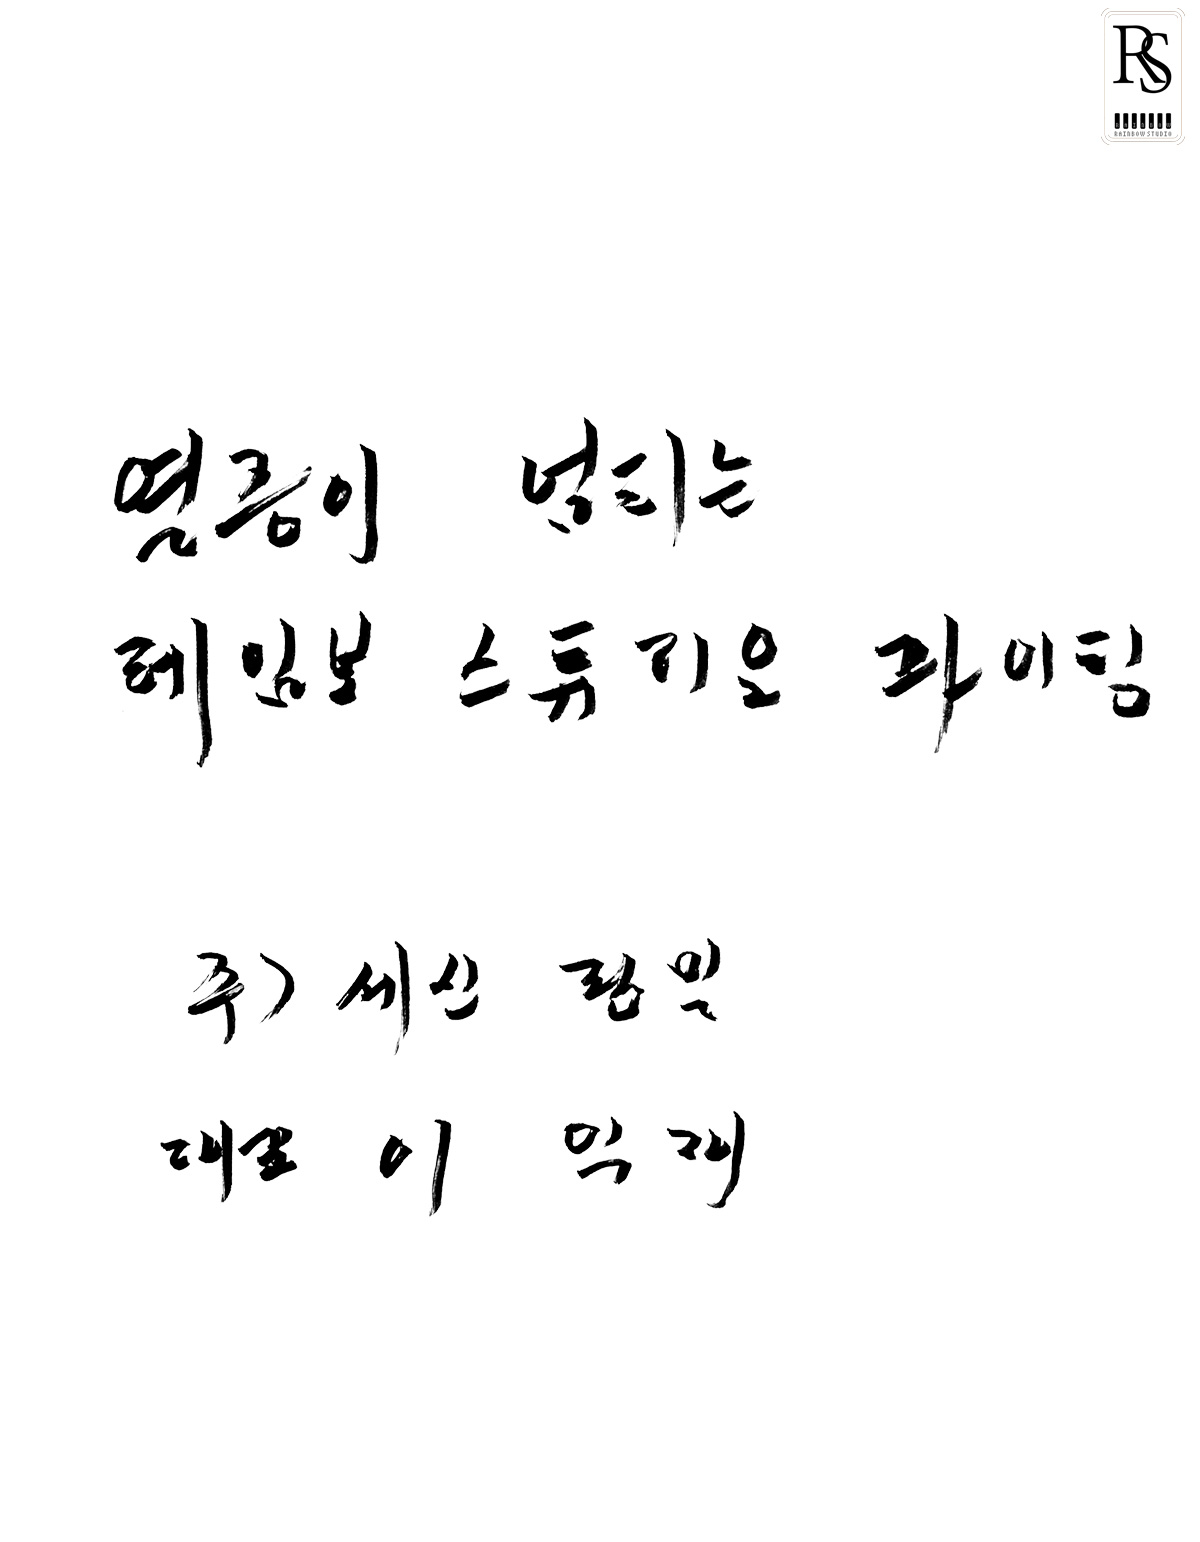 RS
RAINBOW STUDIO
열정이 넘치는
레인보 스튜디오 파이팅
주) 세신 정밀
대표 이 익재